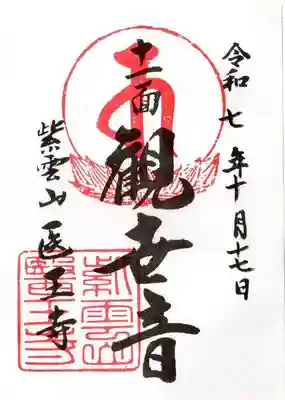 令和七年十月十七日
十一面
観世音
紫雲山
医王寺
紫雲山
醫王寺